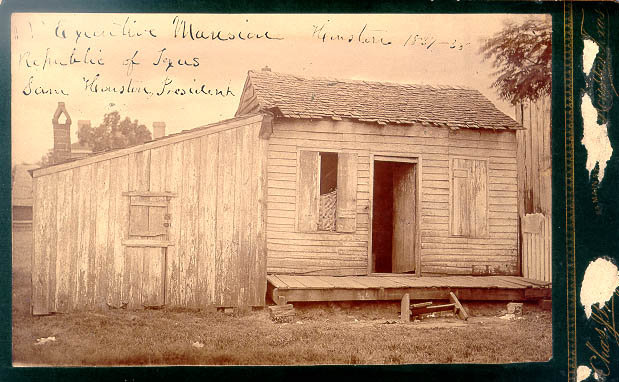 Executive Mansion Houston 1837-38
Republic of Texas
Sam Houston, President